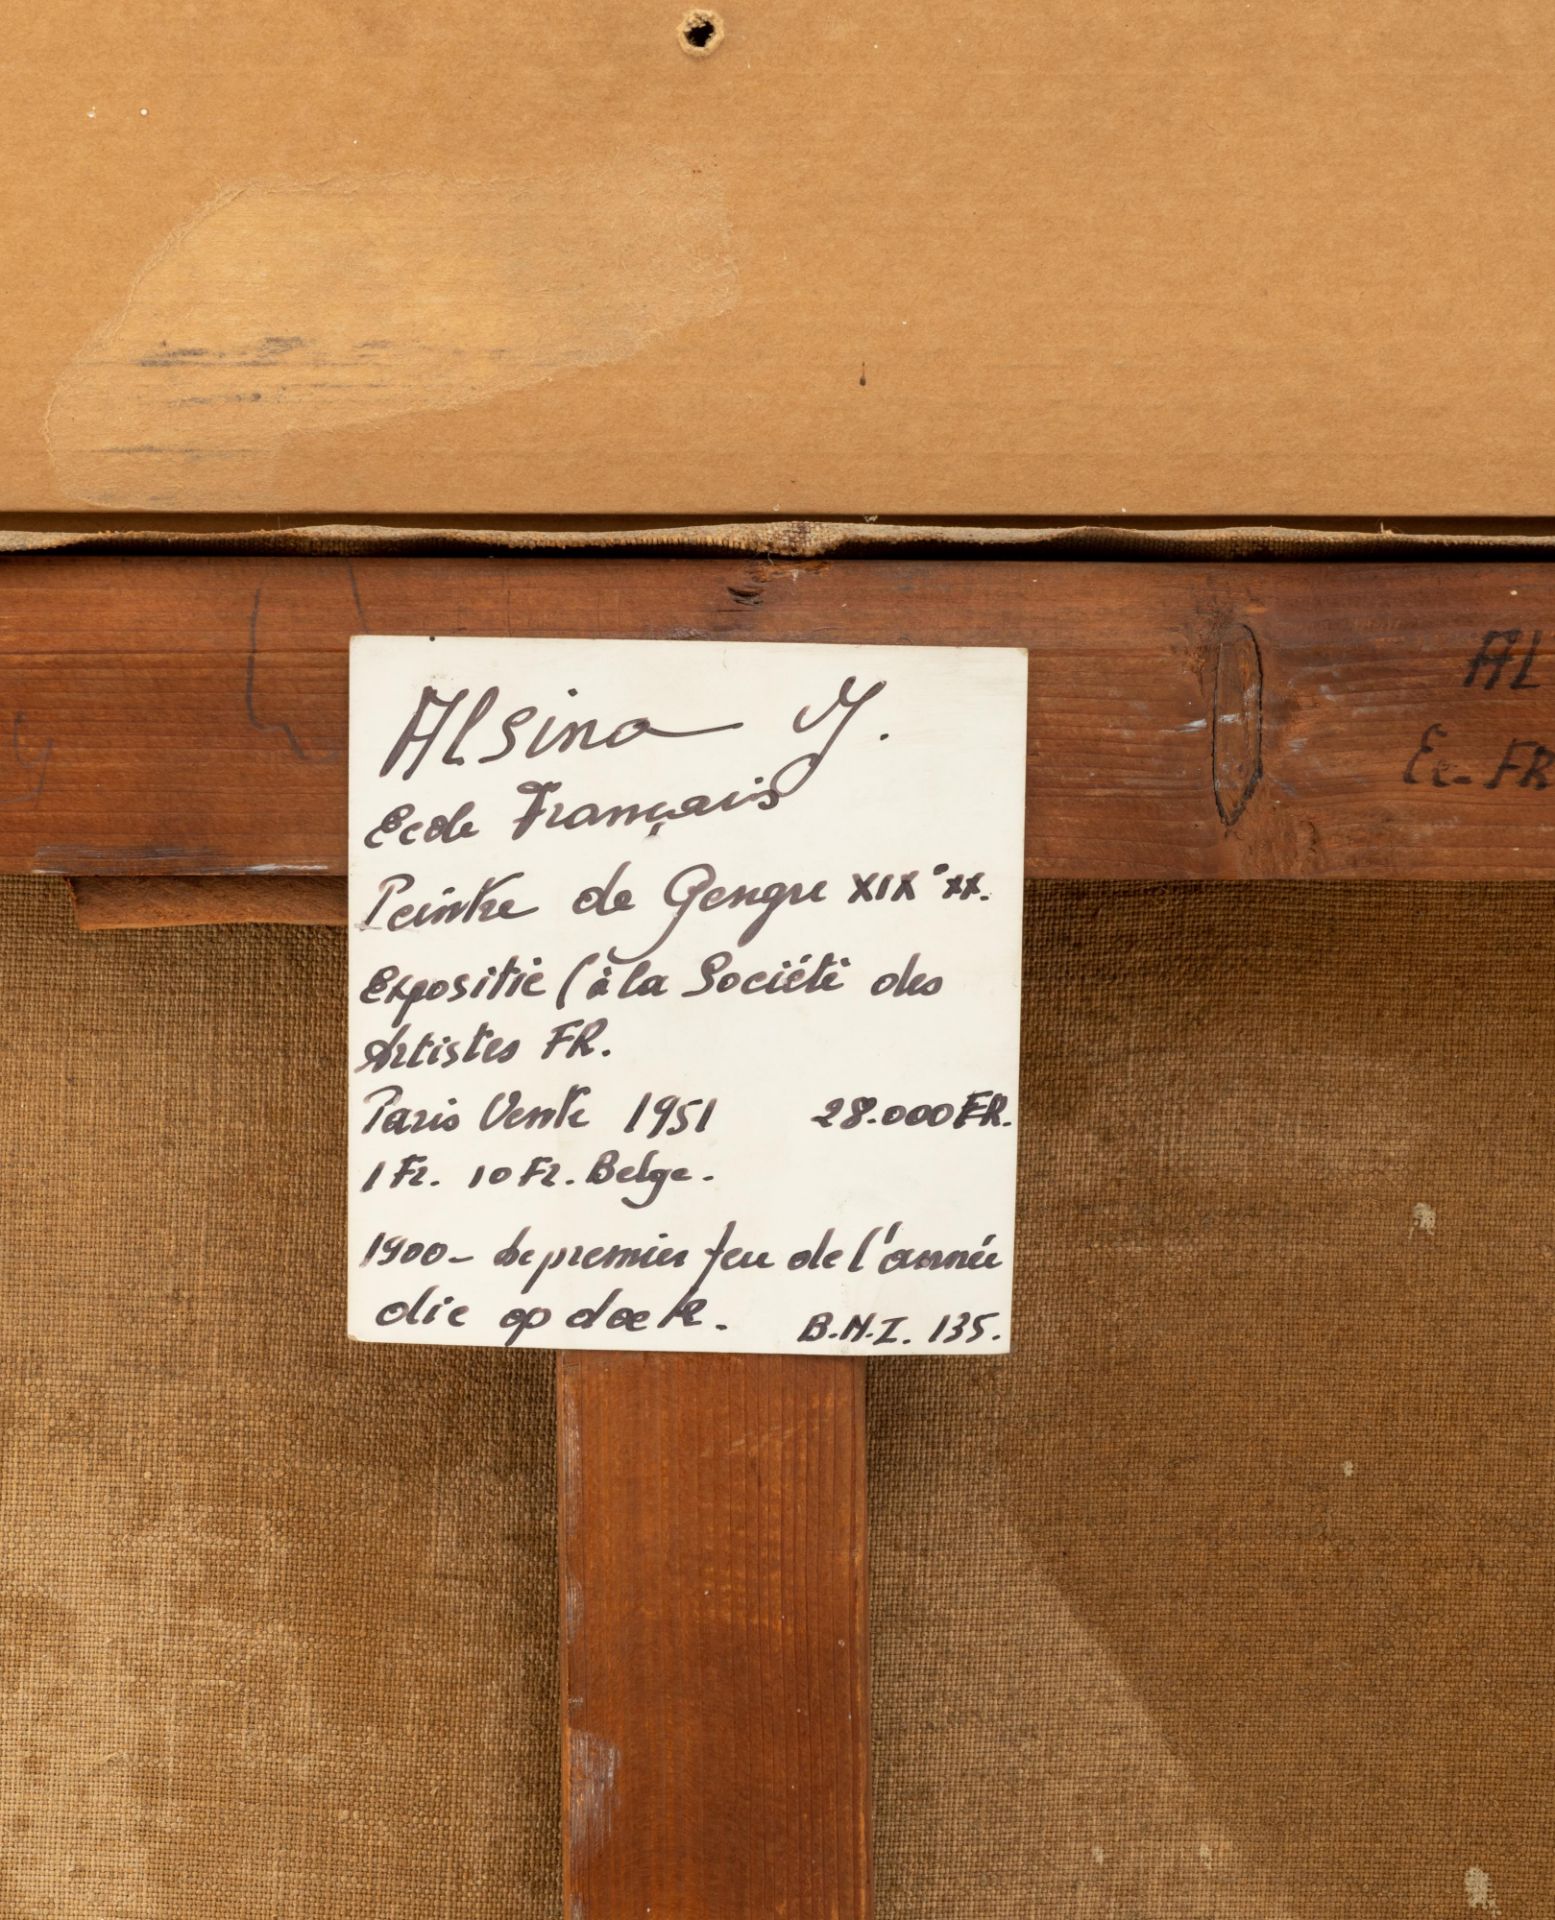 Alsina J.
Ecole Français
Peintre de Gengre XIX° XX.
Expositie (à la Société des
Artistes FR.
Paris Vente 1951 28.000 FR.
1 Fr. 10 Fr. Belge.
1900 - Le premier feu de l'année
die op doek. B.N.I. 135.
AL
Ec. FR